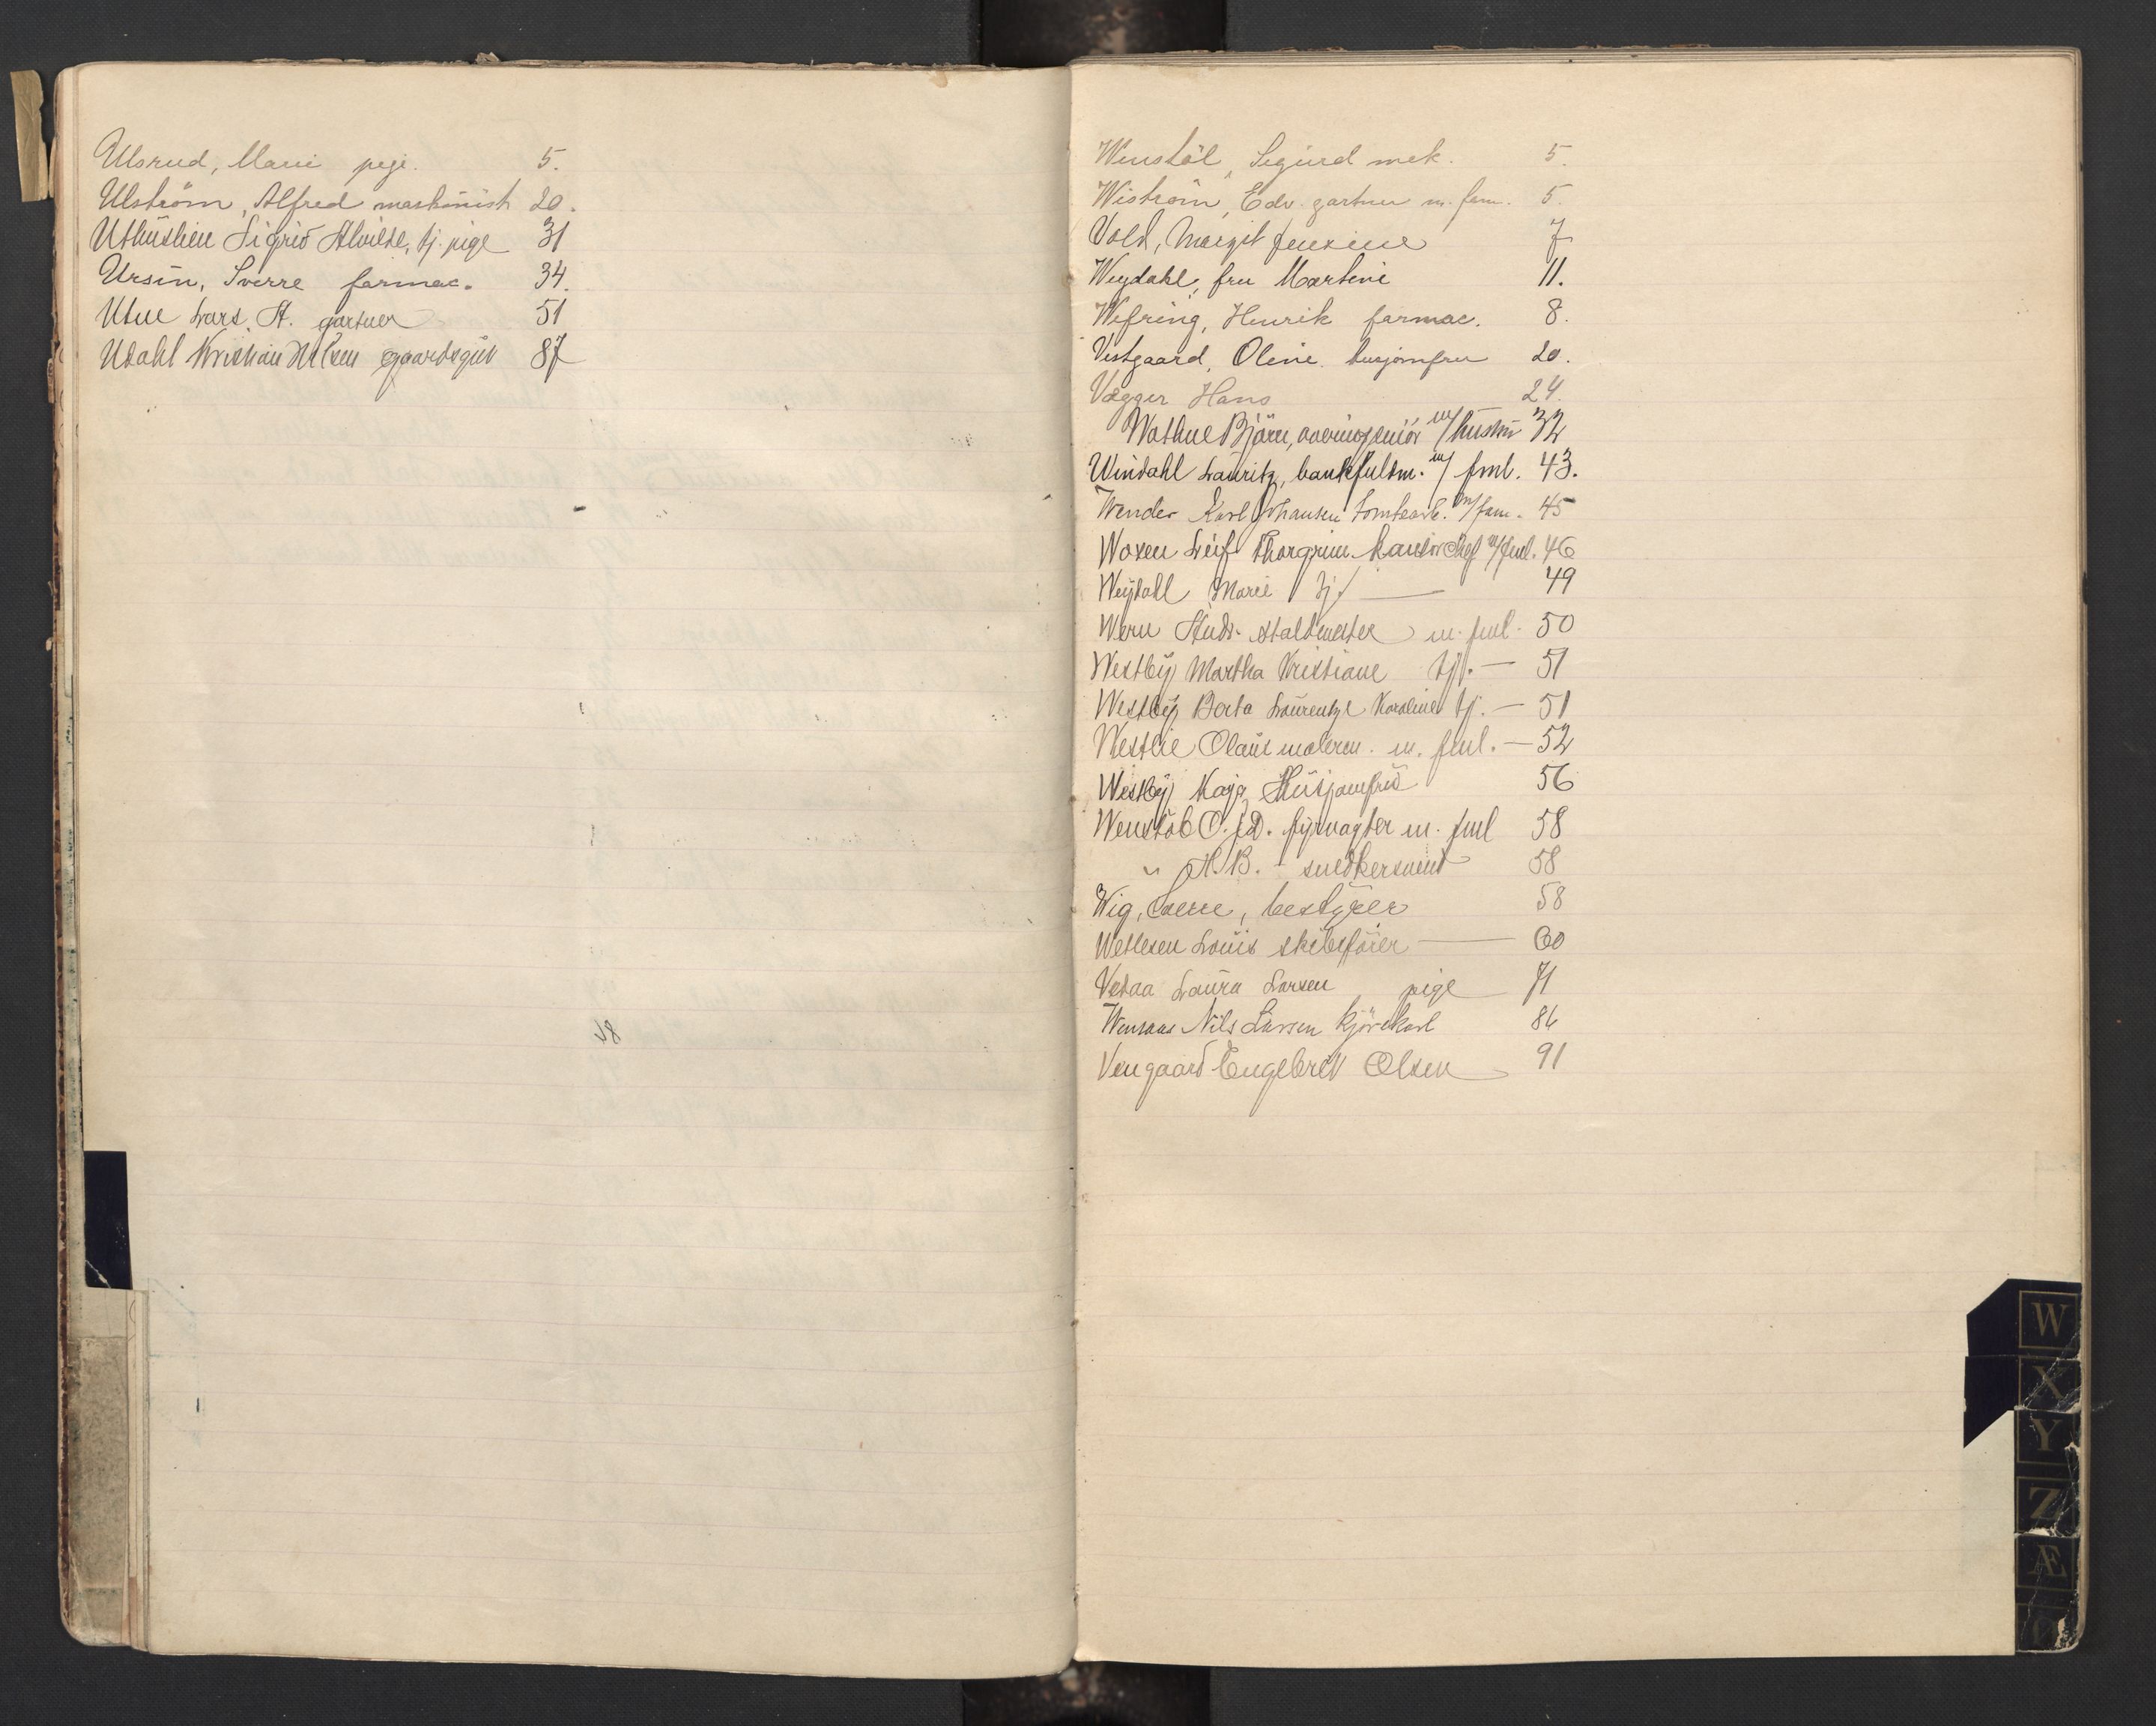 Ulsrud, Marie pige. 5.
Ulström, Alfred maskinist 20.
Uthuslien Sigrid Alvilde, tj. pige 31
Ursin, Sverre farmac. 34.
Utne Lars A. gartner 51
Udahl Kristian Nilsen gaardsgut 87
Wenstöl, Sigurd mek. 5.
Wiström, Edv. gartner m. fam. 5.
Vold, Margit Jensine 7
Weydahl, fru Martine 11.
Wefring, Henrik farmac. 8.
Vestgaard, Oline husjomfru 20.
Vægger Hans 24.
Wathne Björn, overingeniör m/hustru 32
Windahl Lauritz, bankfuldm. m/ fml. 43.
Wender Karl Johansen tomtearb. m/fam. 45
Woxen Leif Thorgrim kontorchef m/fml. 46
Weydahl Marie tj. — 49
Wern Andr. staldmester m. fml. 50
Westby Martha Kristiane tj. — 51
Westby Berta Laurentze Karoline tj. — 51
Westlie Olaus malerm. m. fml. — 52
Westby Kaja Husjomfru 56
Wenstöb O. fyrvagter m. fml 58
" H.B. - snedkersvend 58
Wig, Sverre, bestyrer 58
Wetlesen Louis skibsförer — 60
Vedaa Laura Larsen pige 71
Wensaas Nils Larsen kjörekarl 86
Vengaard Engebret Olsen 91
W
X
Y
Z
Æ